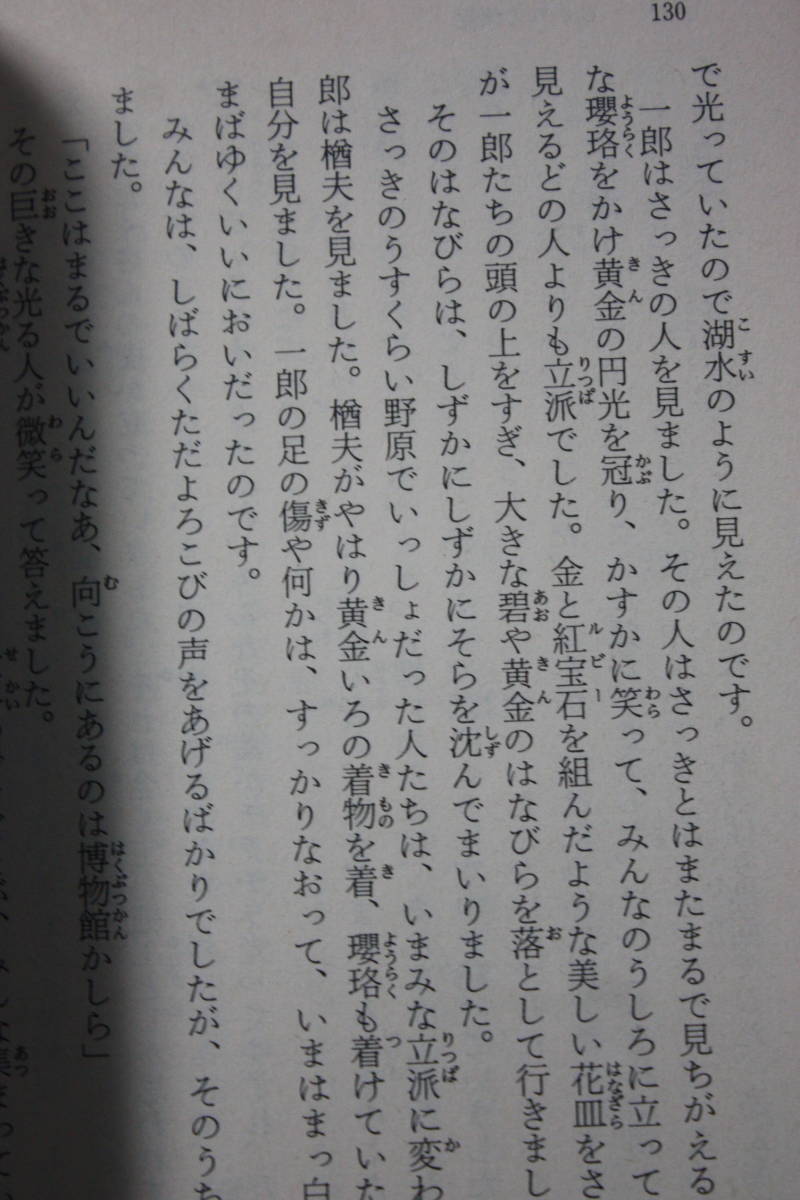 130
で光っていたので湖水のように見えたのです。
一郎はさっきの人を見ました。その人はさっきとはまたまるで見ちがえる
な瓔珞をかけ黄金の円光を冠り、かすかに笑って、みんなのうしろに立って
見えるどの人よりも立派でした。金と紅宝石を組んだような美しい花皿をさ
が一郎たちの頭の上をすぎ、大きな碧や黄金のはなびらを落として行きまし
そのはなびらは、しずかにしずかにそらを沈んでまいりました。
さっきのうすくらい野原でいっしょだった人たちは、いまみな立派に変わ
郎は楢夫を見ました。楢夫がやはり黄金いろの着物を着、瓔珞も着けていた
自分を見ました。一郎の足の傷や何かは、すっかりなおって、いまはまっ白
まばゆくいいにおいだったのです。
みんなは、しばらくただよろこびの声をあげるばかりでしたが、そのうち
ました。
「ここはまるでいいんだなあ、向こうにあるのは博物館かしら」
その巨きな光る人が微笑って答えました。